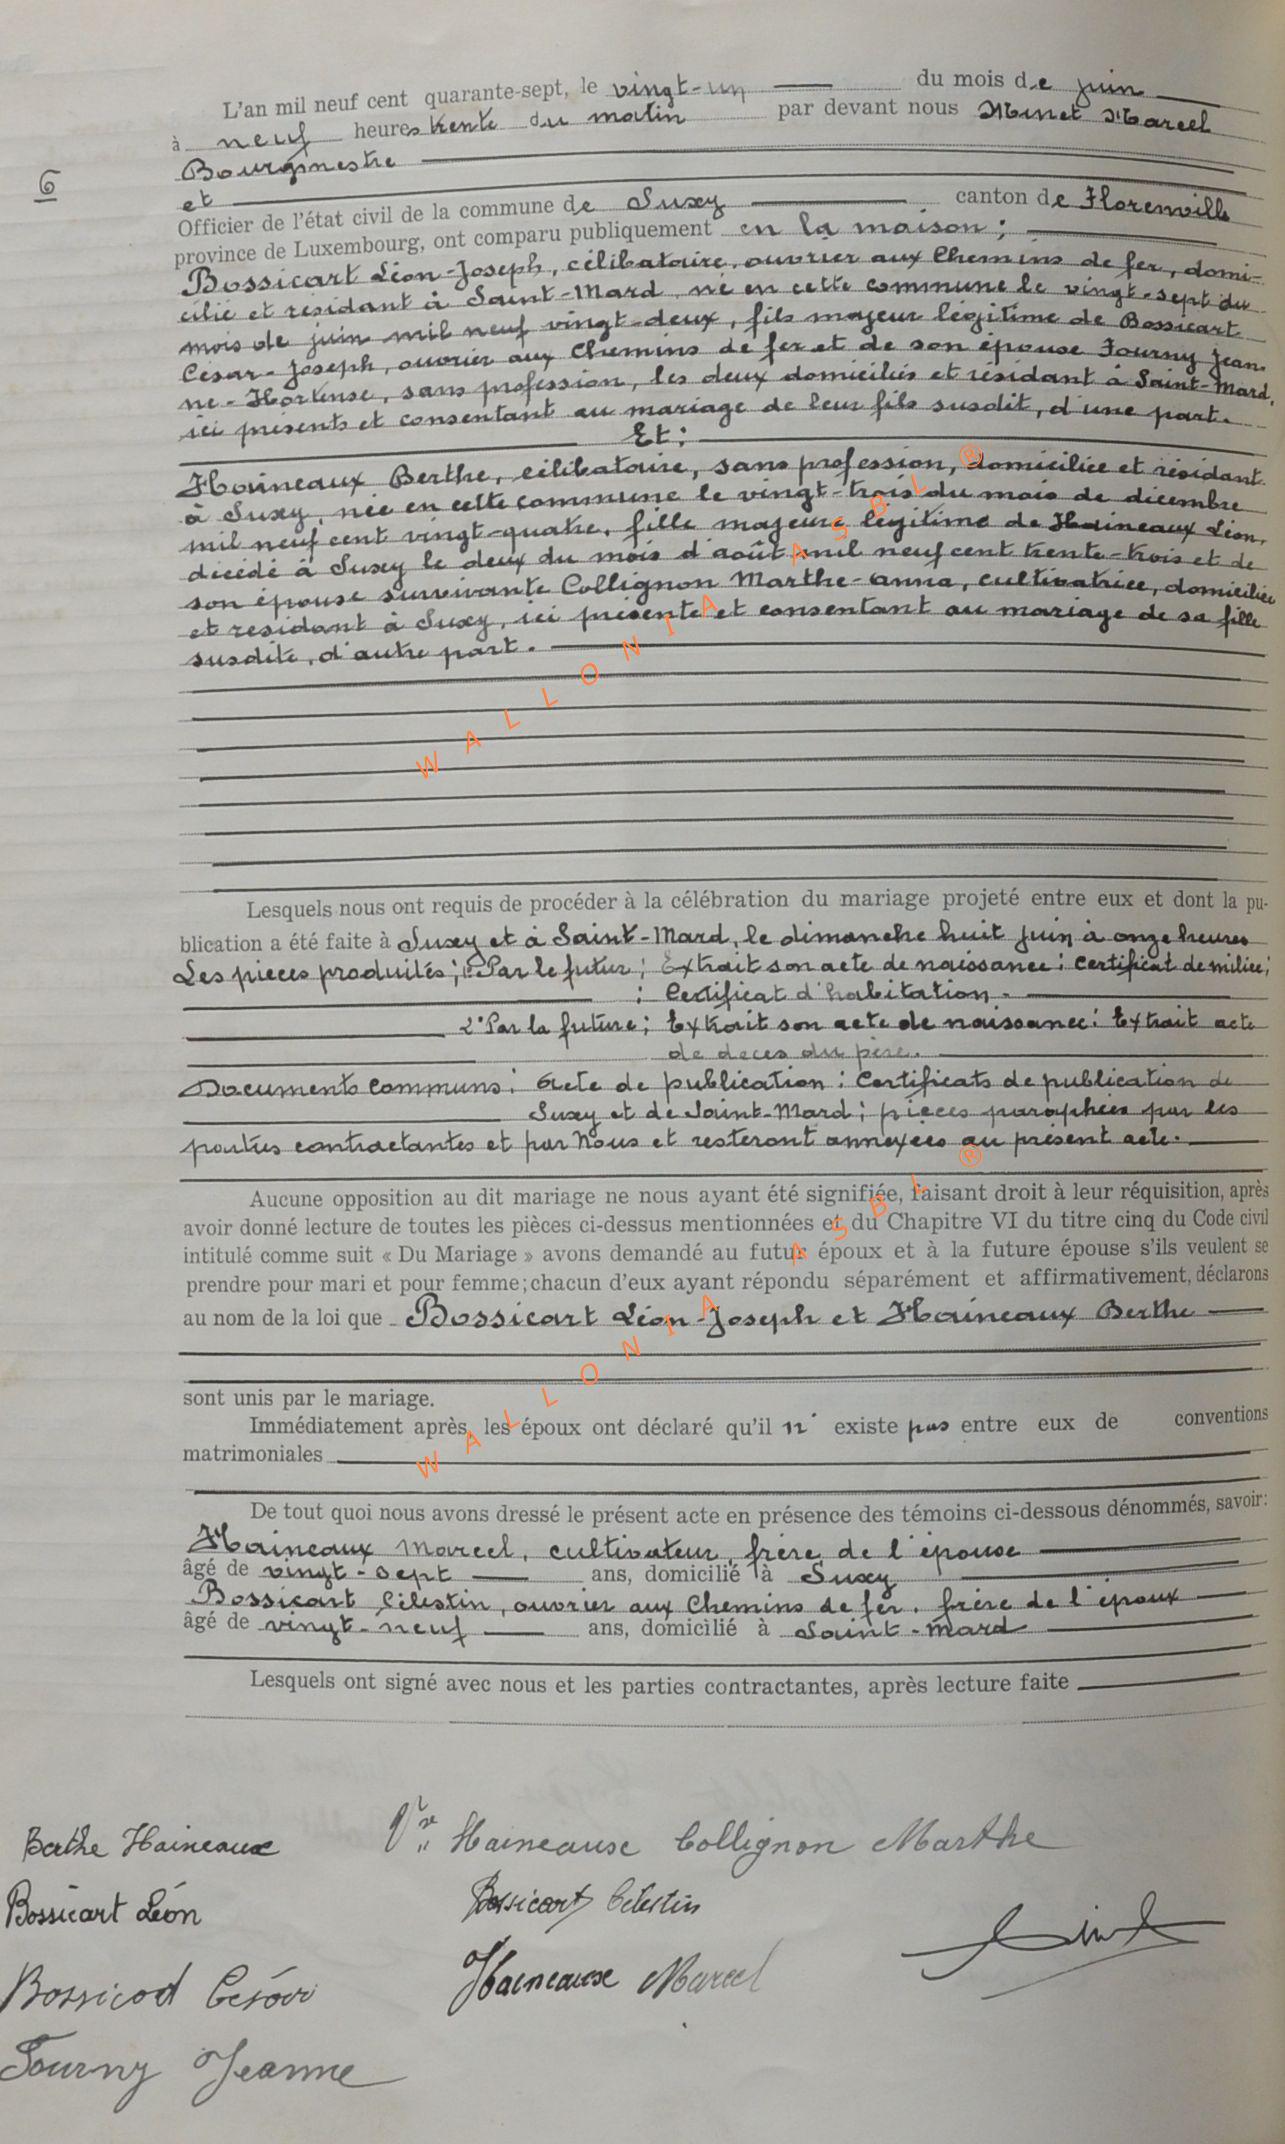 L'an mil neuf cent quarante-sept, le vingt-un du mois de juin
à neuf heures trente du matin par devant nous Minet Marcel
Bourgmestre
6
et
Officier de l'état civil de la commune de Suxy canton de Florenville
province de Luxembourg, ont comparu publiquement en la maison ;
Bossicart Léon-Joseph, célibataire, ouvrier aux Chemins de fer, domi-
cilié et résidant à Saint-Mard, né en cette commune le vingt-sept du
mois de juin mil neuf vingt-deux, fils majeur légitime de Bossicart
César-Joseph, ouvrier aux Chemins de fer et de son épouse Fourny Jean-
ne-Hortense, sans profession, les deux domiciliés et résidant à Saint-Mard,
ici présents et consentant au mariage de leur fils susdit, d'une part.
Et :
Haineaux Berthe, célibataire, sans profession, domiciliée et résidant
à Suxy, née en cette commune le vingt-trois du mois de décembre
mil neuf cent vingt-quatre, fille majeure légitime de Haineaux Léon,
décédé à Suxy le deux du mois d'août mil neuf cent trente-trois et de
son épouse survivante Collignon Marthe-Anna, cultivatrice, domiciliée
et résidant à Suxy, ici présente et consentant au mariage de sa fille
susdite, d'autre part.
WALLONIA ASBL ®
Lesquels nous ont requis de procéder à la célébration du mariage projeté entre eux et dont la pu-
blication a été faite à Suxy et à Saint-Mard, le dimanche huit juin à onze heures
Les pièces produites ; 1° Par le futur ; Extrait son acte de naissance ; Certificat de milice ;
; Certificat d'habitation.
2° Par la future ; Extrait son acte de naissance ; Extrait acte
de décès du père.
Documents communs : Acte de publication ; Certificats de publication de
Suxy et de Saint-Mard ; pièces paraphées par les
parties contractantes et par Nous et resteront annexées au présent acte.
Aucune opposition au dit mariage ne nous ayant été signifiée, faisant droit à leur réquisition, après
avoir donné lecture de toutes les pièces ci-dessus mentionnées et du Chapitre VI du titre cinq du Code civil
intitulé comme suit « Du Mariage » avons demandé au futur époux et à la future épouse s'ils veulent se
prendre pour mari et pour femme ; chacun d'eux ayant répondu séparément et affirmativement, déclarons
au nom de la loi que Bossicart Léon-Joseph et Haineaux Berthe
sont unis par le mariage.
Immédiatement après, les époux ont déclaré qu'il n' existe pas entre eux de conventions
matrimoniales
WALLONIA ASBL ®
De tout quoi nous avons dressé le présent acte en présence des témoins ci-dessous dénommés, savoir :
Haineaux Marcel, cultivateur, frère de l'épouse
âgé de vingt-sept ans, domicilié à Suxy
Bossicart Célestin, ouvrier aux Chemins de fer, frère de l'époux
âgé de vingt-neuf ans, domicilié à Saint-Mard
Lesquels ont signé avec nous et les parties contractantes, après lecture faite
Berthe Haineaux Vve Haineaux Collignon Marthe
Bossicart Léon Bossicart Célestin
Bossicart César Haineaux Marcel
Fourny Jeanne